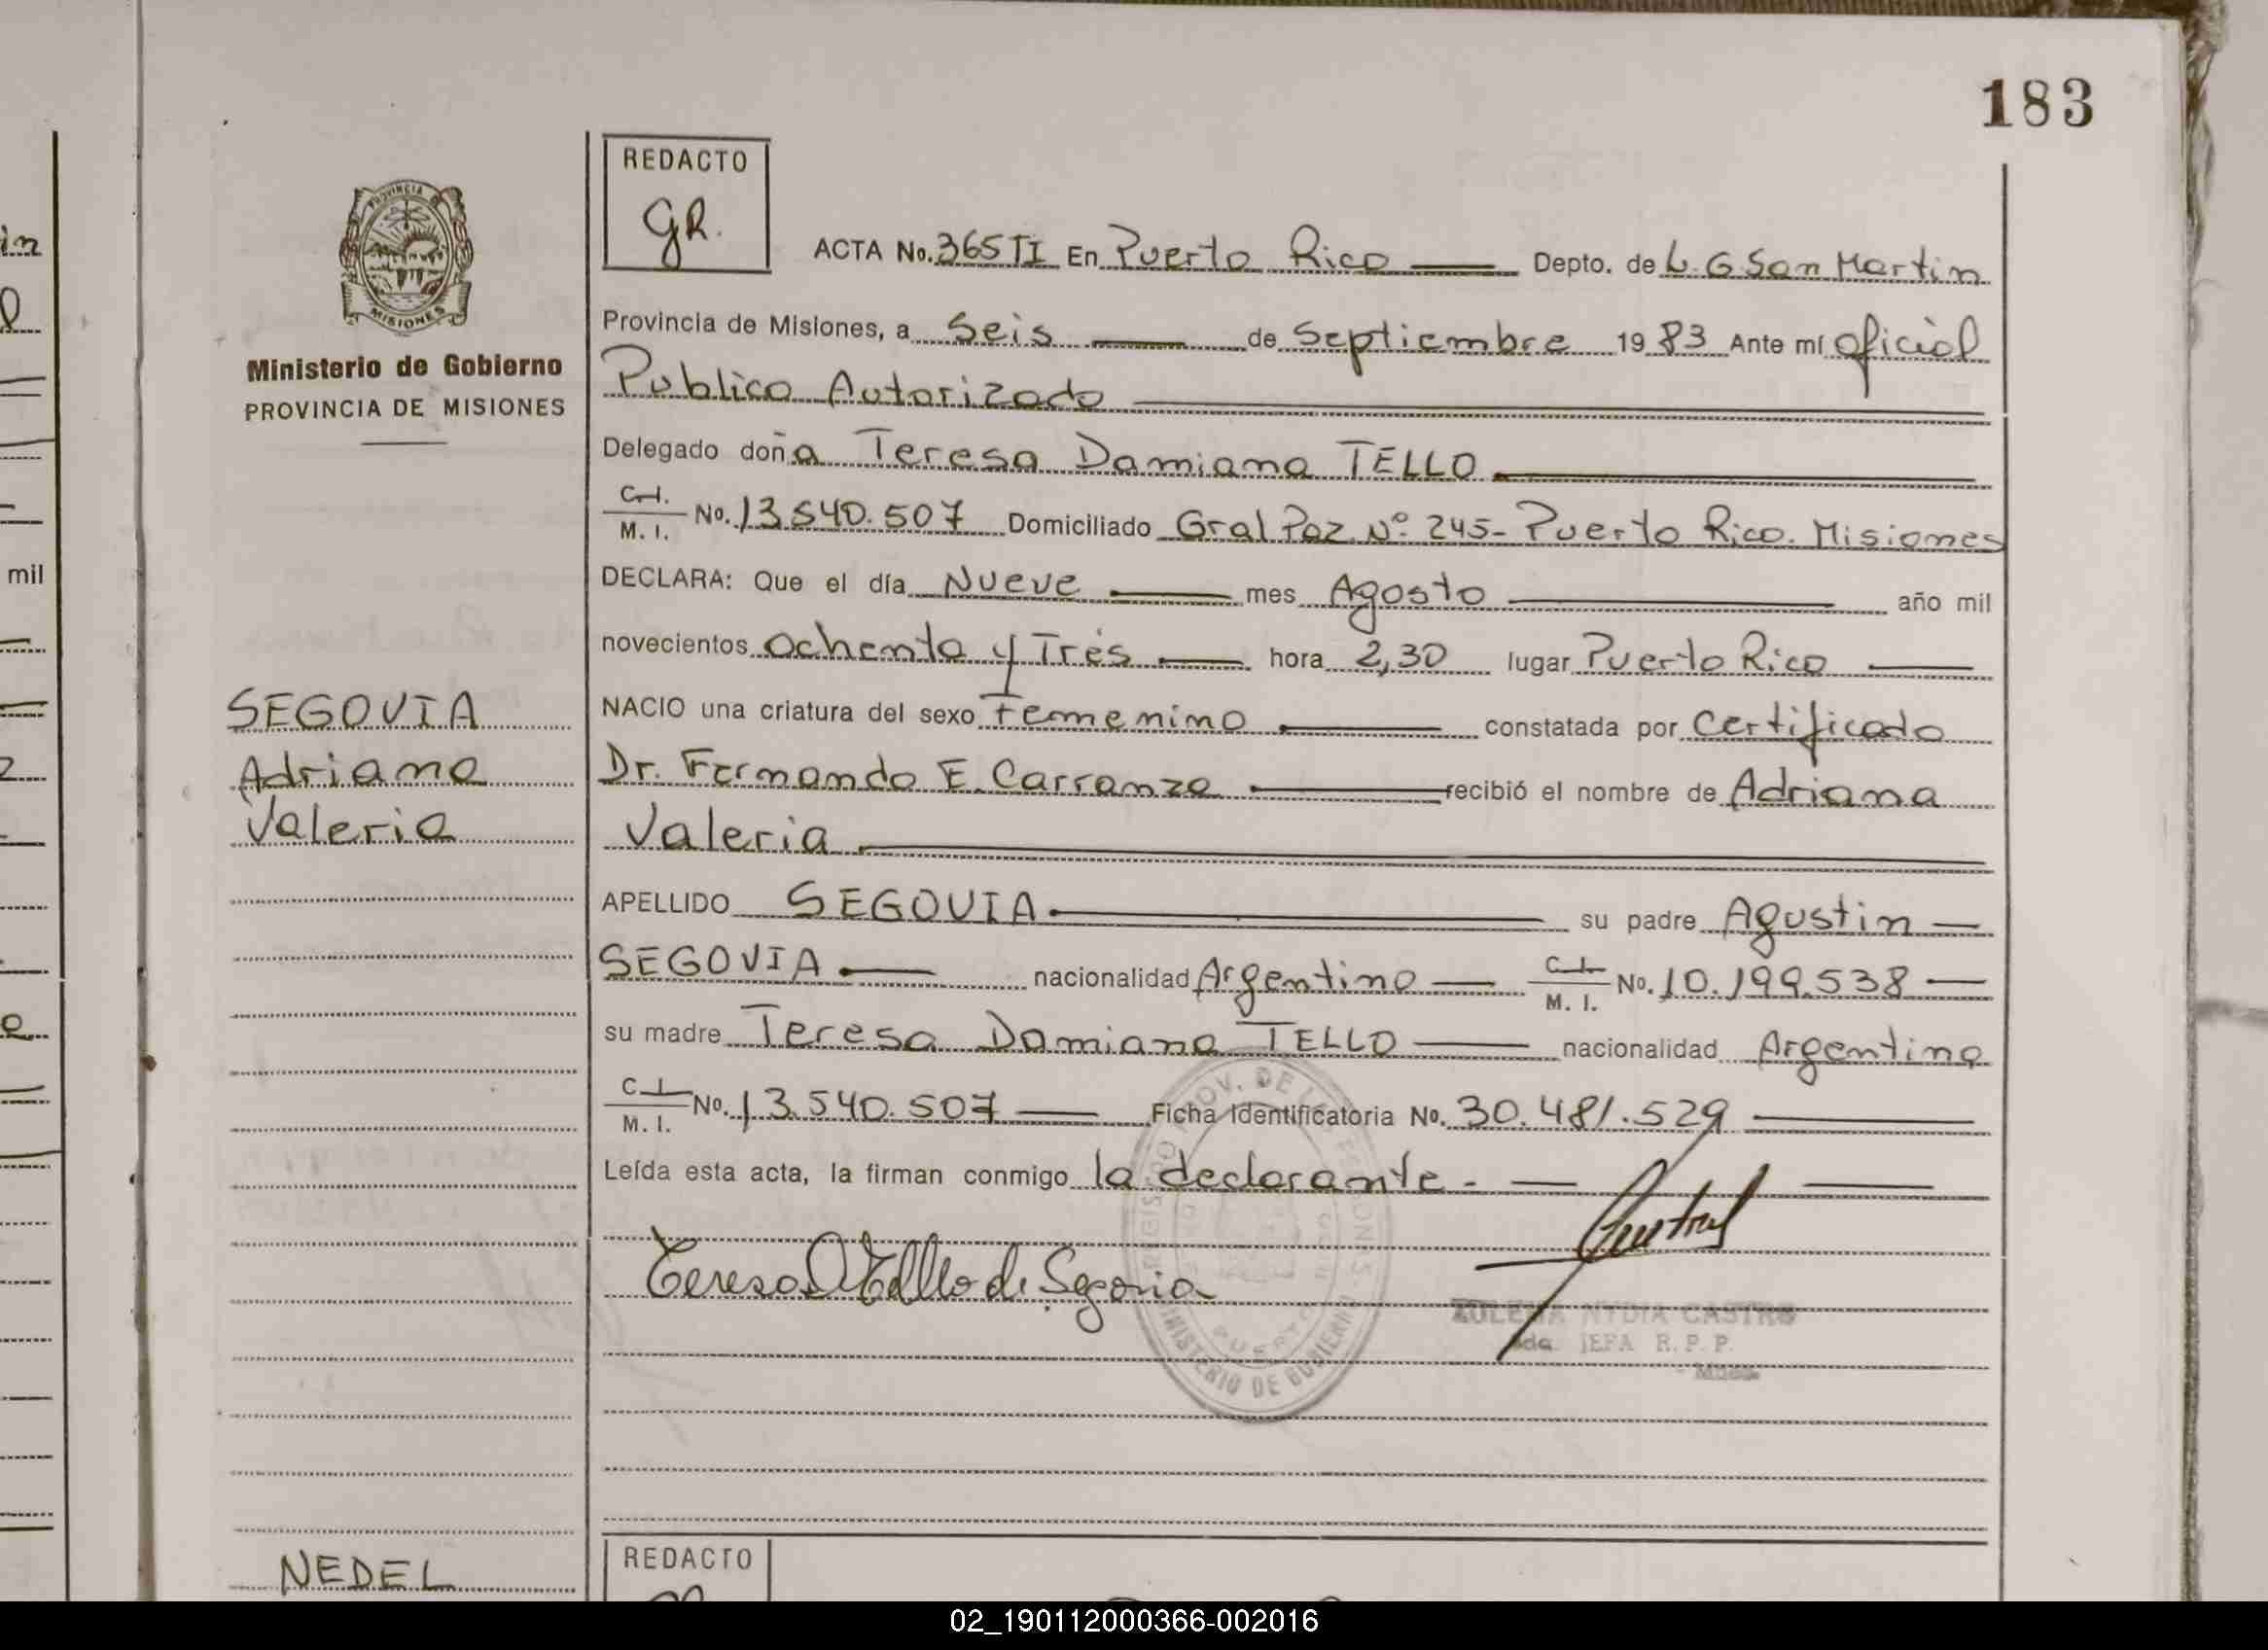 183
PROVINCIA
MISIONES
Ministerio de Gobierno
PROVINCIA DE MISIONES
REDACTO
GR.
ACTA No. 365 TI En Puerto Rico Depto. de L. G San Martin
Provincia de Misiones, a Seis de Septiembre 19 83 Ante mí oficial
Publico Autorizado
Delegado doña Teresa Damiana TELLO
C.I.
M. I. No. 13.540.507 Domiciliado Gral Paz Nº 245- Puerto Rico. Misiones
DECLARA: Que el día Nueve mes Agosto año mil
novecientos ochenta y Tres hora 2,30 lugar Puerto Rico
NACIO una criatura del sexo femenino constatada por Certificado
Dr. Fernando E. Carranza recibió el nombre de Adriana
Valeria
APELLIDO SEGOVIA su padre Agustin
SEGOVIA nacionalidad Argentina C.I.
M. I. No. 10.199.538
su madre Teresa Damiana TELLO nacionalidad Argentina
C.I.
M. I. No. 13.540.507 Ficha Identificatoria No. 30.481.529
Leída esta acta, la firman conmigo la declarante.-
Teresa D Tello de Segovia
NYDIA CASTRO
JEFA R. P. P.
MINISTERIO DE GOBIERNO
PUERTO
SEGOVIA
Adriana
Valeria
NEDEL
REDACTO
in
mil
02_190112000366-002016